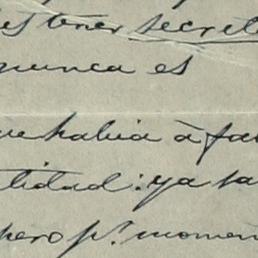 tener secret
nunca es
habia à fa
tidad: ya sa
pero pr. momen